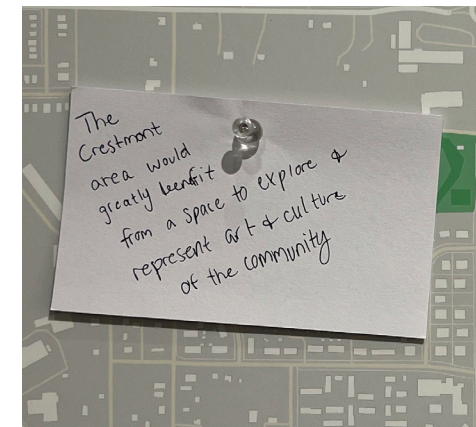 The
Crestmont
area would
greatly benefit
from a space to explore &
represent art & culture
of the community